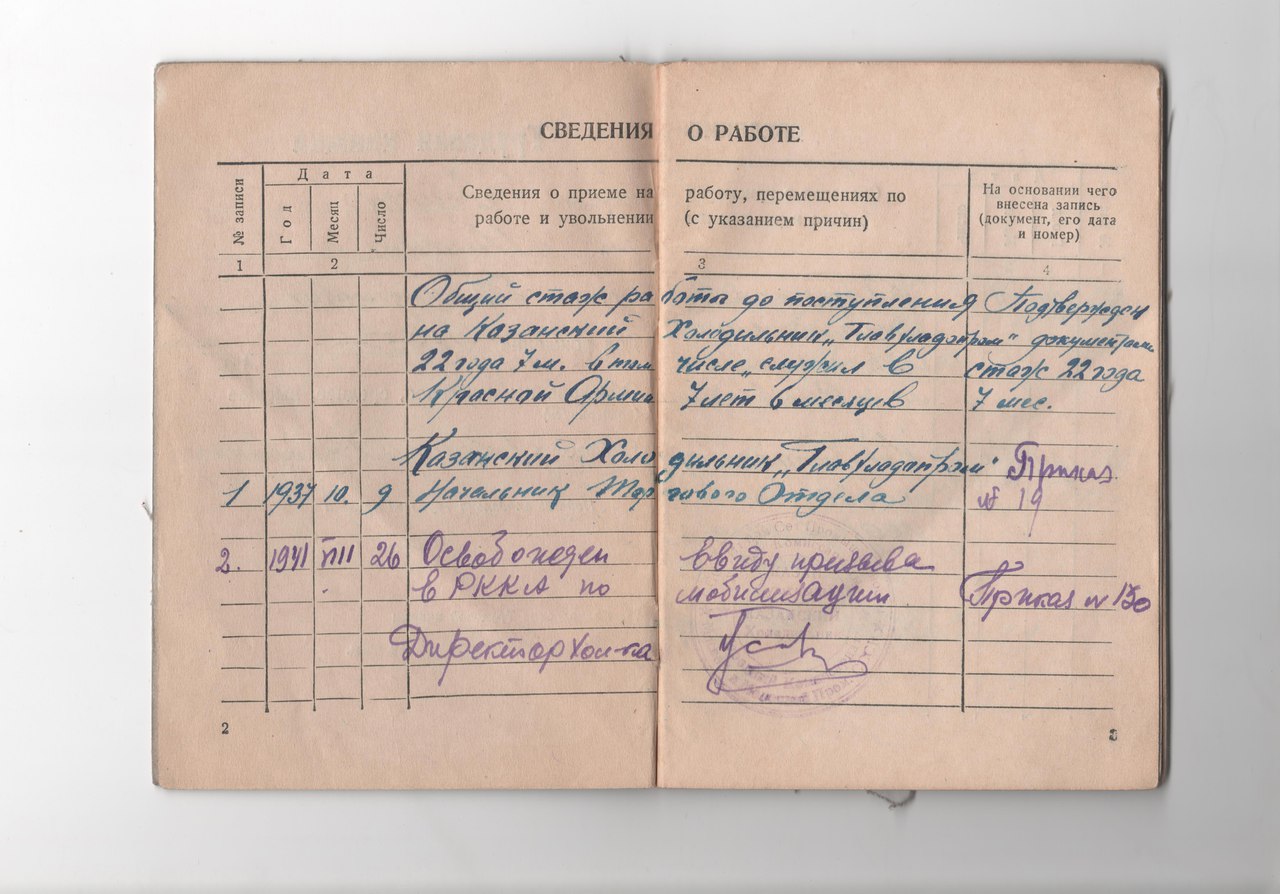 СВЕДЕНИЯ О РАБОТЕ
№ записи
Дата
Год
Месяц
Число
Сведения о приеме на работу, перемещениях по
работе и увольнении (с указанием причин)
На основании чего
внесена запись
(документ, его дата
и номер)
1 2 3 4
Общий стаж работы до поступления Подтвержден
на Казанский Холодильник „Главхладопром" документами
22 года 7 м. в том числе „служил в стаж 22 года
Красной Армии 7 лет 6 месяцев 7 мес.
Казанский Холодильник „Главхладопром" Приказ
1 1937 10. 9 Начальник Торгового Отдела № 19
2. 1941 VIII 26 Освобожден ввиду призыва
в РККА по мобилизации Приказ № 150
Директор Хол-ка
2
3